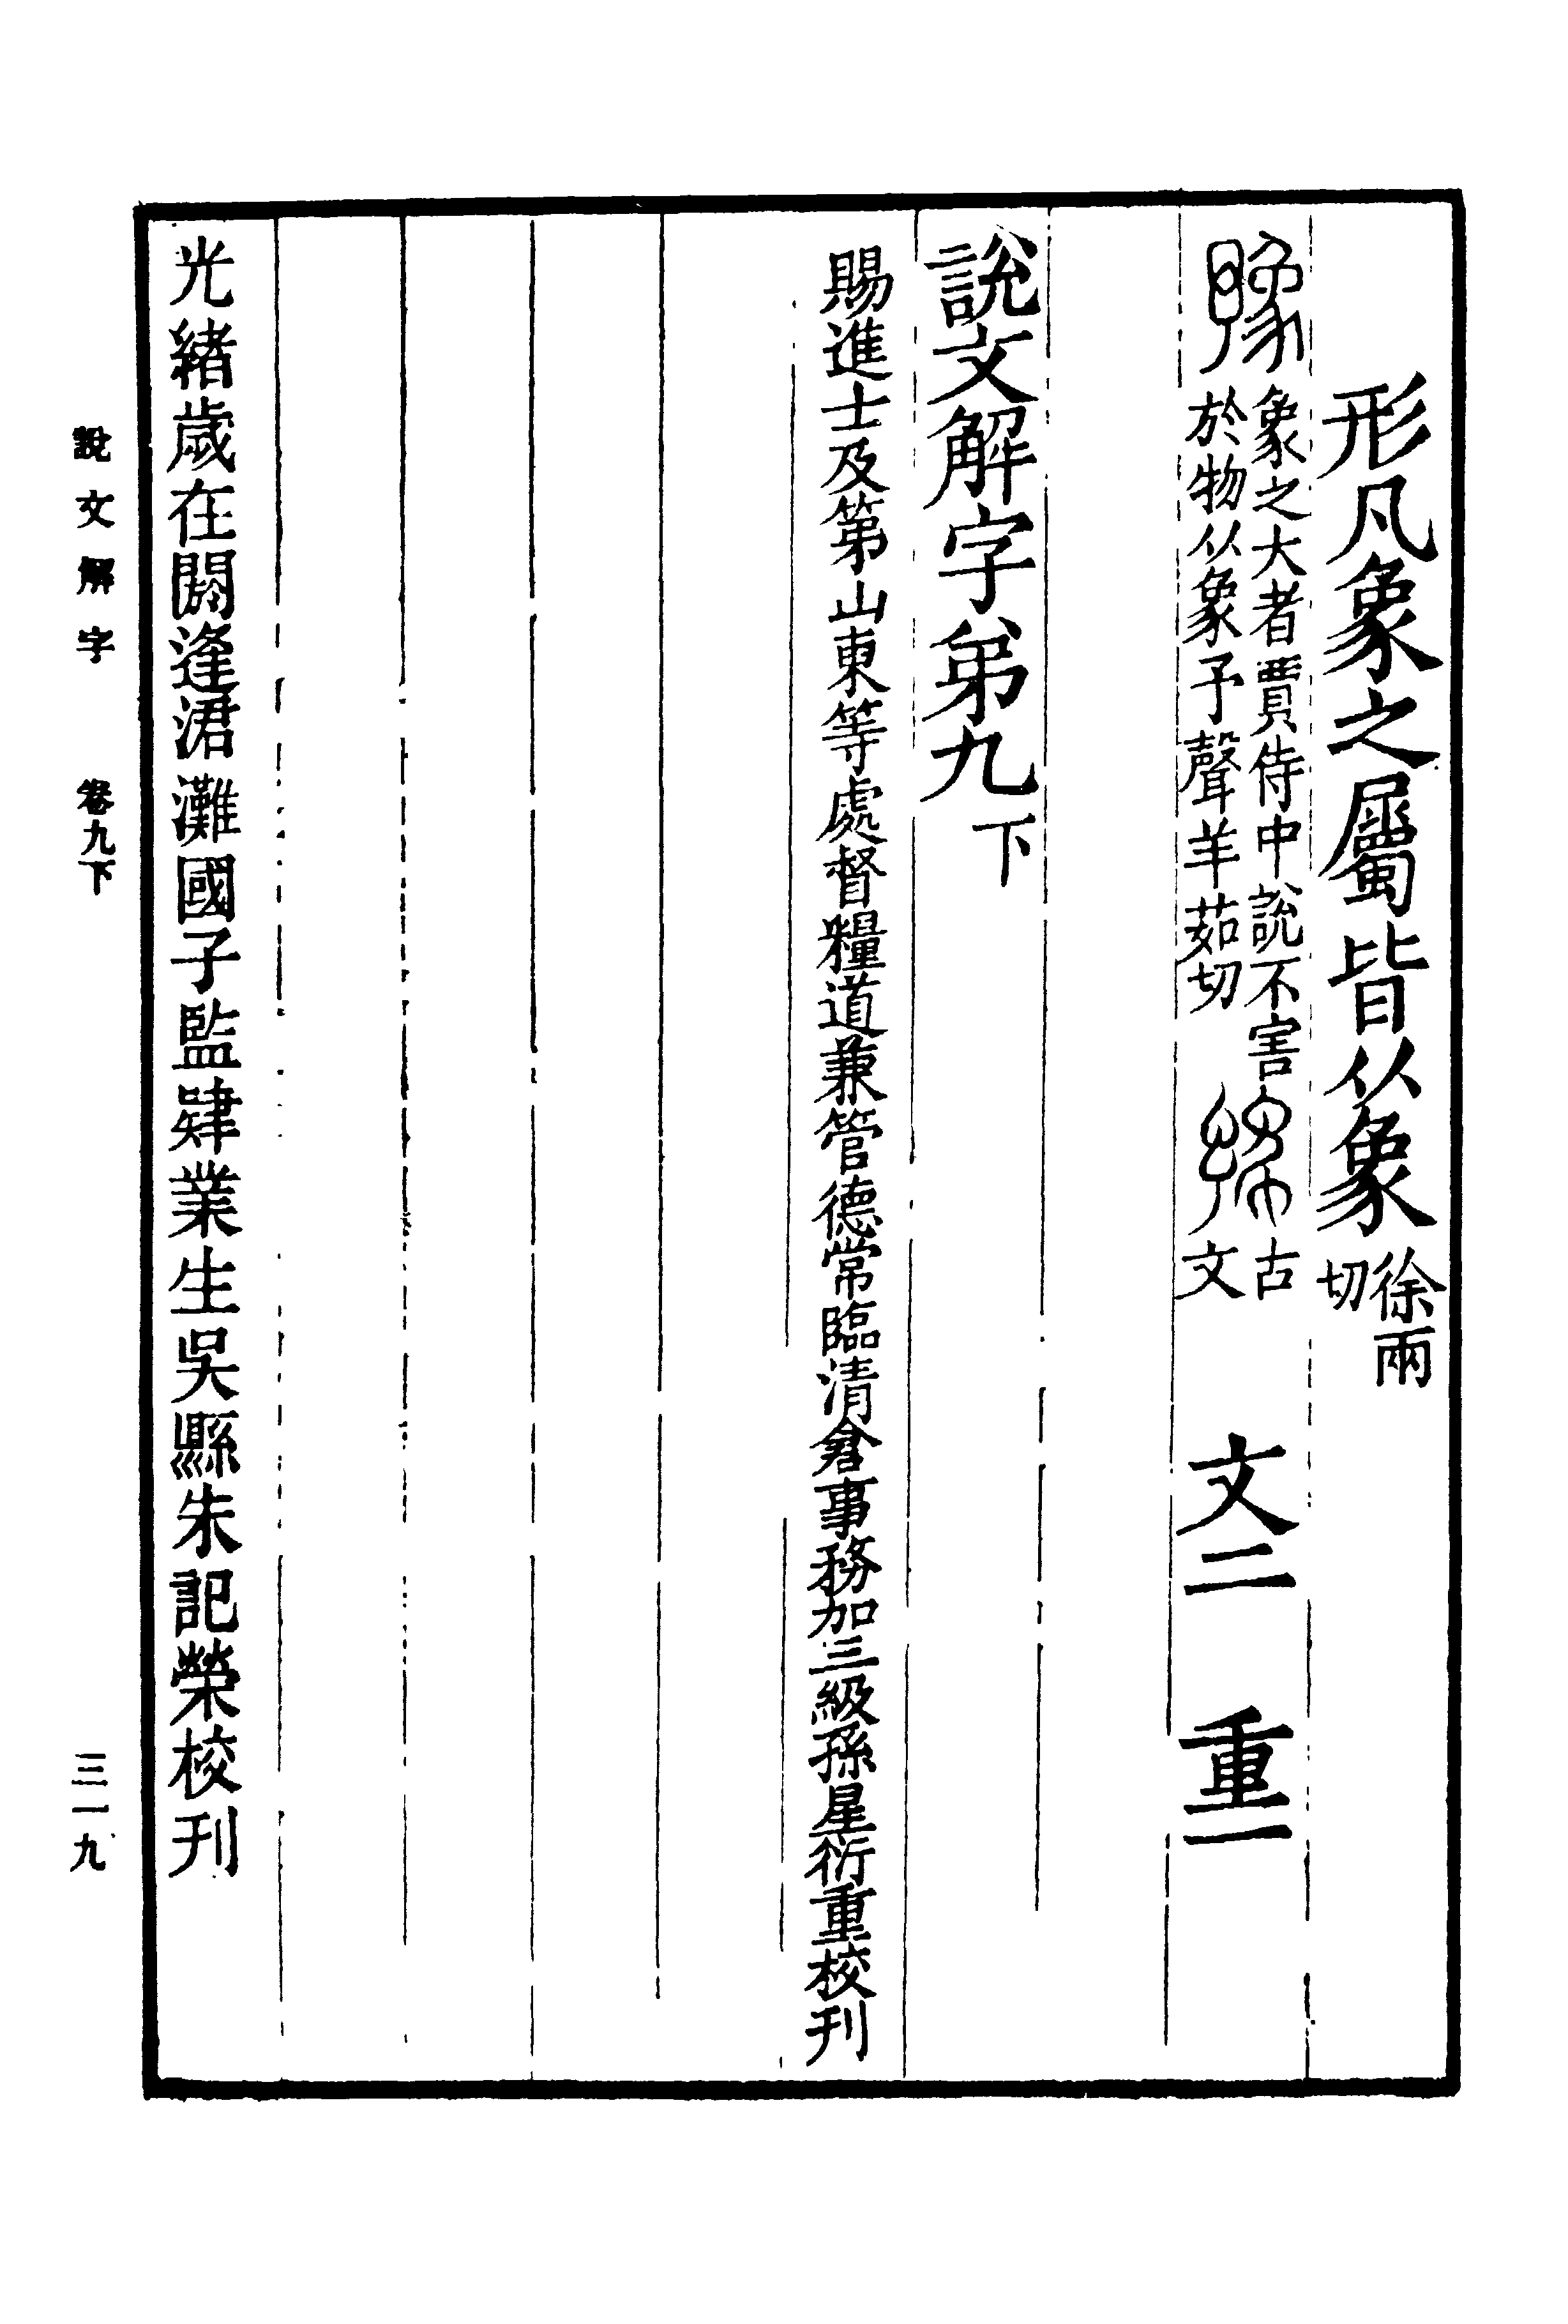 形凡象之屬皆从象徐兩切
豫象之大者賈侍中說不害於物从象予聲羊茹切𢑦古文　文二　重一
說文解字弟九下
賜進士及第山東等處督糧道兼管德常臨清倉事務加三級孫星衍重校刊
光緒歲在閼逢涒灘國子監肄業生吳縣朱記榮校刊
說文解字　卷九下　三一九